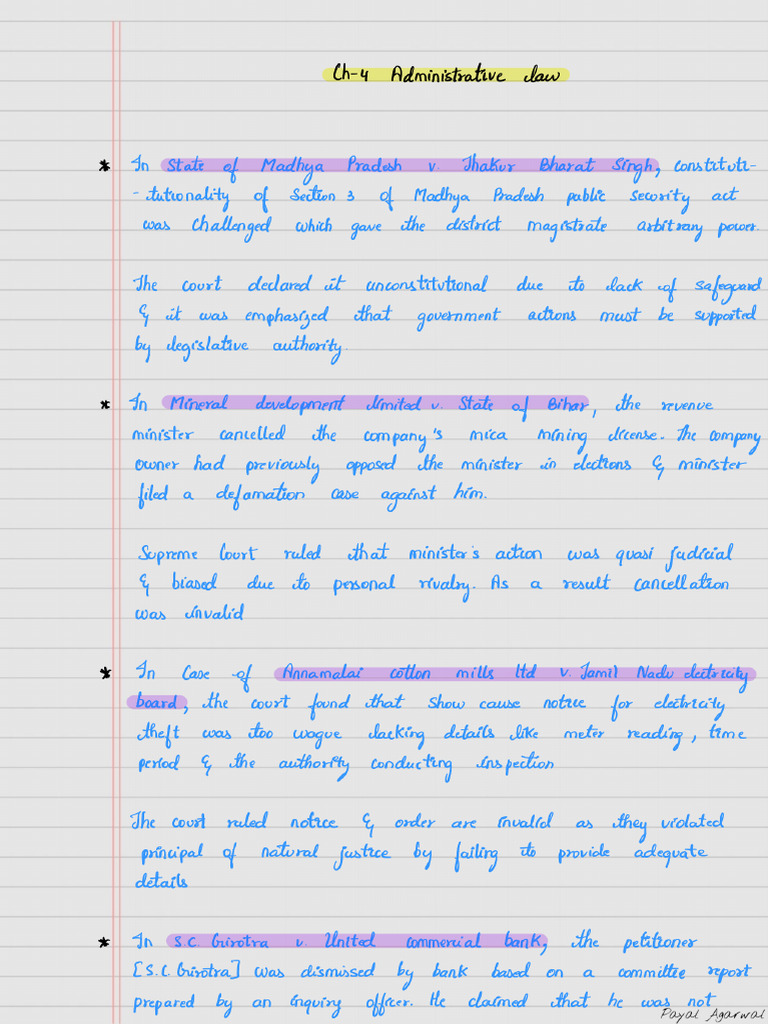 Ch-4 Administrative law
* In State of Madhya Pradesh v. Thakur Bharat Singh, constituti-
-tutionality of Section 3 of Madhya Pradesh public security act
was challenged which gave the district magistrate arbitrary power.
The court declared it unconstitutional due to lack of safeguard
& it was emphasized that government actions must be supported
by legislative authority.
* In Mineral development limited v. State of Bihar, the revenue
minister cancelled the company's mica mining license. The company
owner had previously opposed the minister in elections & minister
filed a defamation case against him.
Supreme Court ruled that minister's action was quasi judicial
& biased due to personal rivalry. As a result cancellation
was invalid
* In Case of Annamalai cotton mills ltd v. Tamil Nadu electricity
board, the court found that show cause notice for electricity
theft was too vague lacking details like meter reading, time
period & the authority conducting inspection
The court ruled notice & order are invalid as they violated
principal of natural justice by failing to provide adequate
details
* In S.C. Girotra v. United commercial bank, the petitioner
[S.C. Girotra] was dismissed by bank based on a committie report
prepared by an inquiry officer. He claimed that he was not
Payal Agarwal